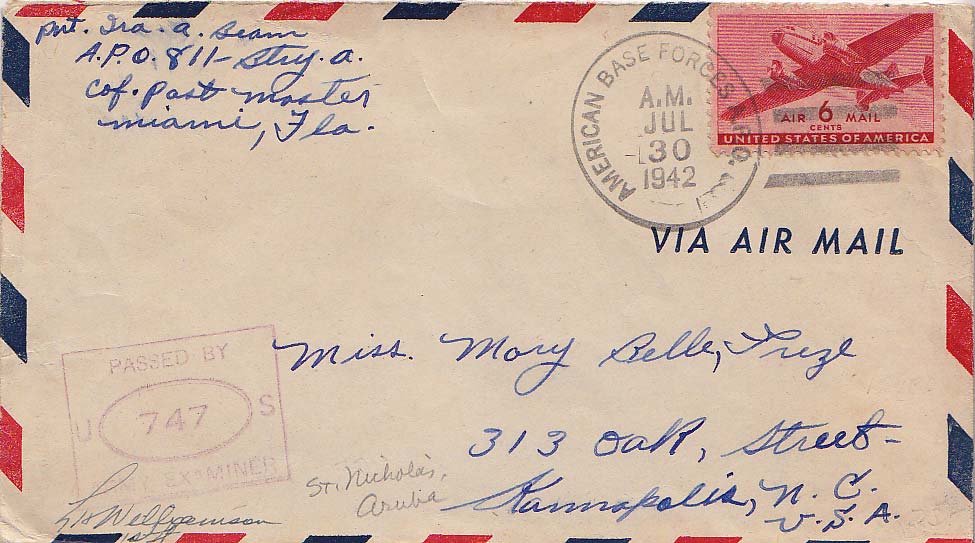 Pvt. Ira. A. Beam
A.P.O. 811- Btry. A.
Cof. Post Master
Miami, Fla.
AMERICAN BASE FORCES A.P.O.
A.M.
JUL
30
1942
AIR 6 MAIL
CENTS
UNITED STATES OF AMERICA
VIA AIR MAIL
PASSED BY
U 747 S
ARMY EXAMINER
Miss. Mary Belle, Trize
313 Oak, Street-
Kannapolis, N. C.
U.S.A.
St. Nicholas,
Aruba